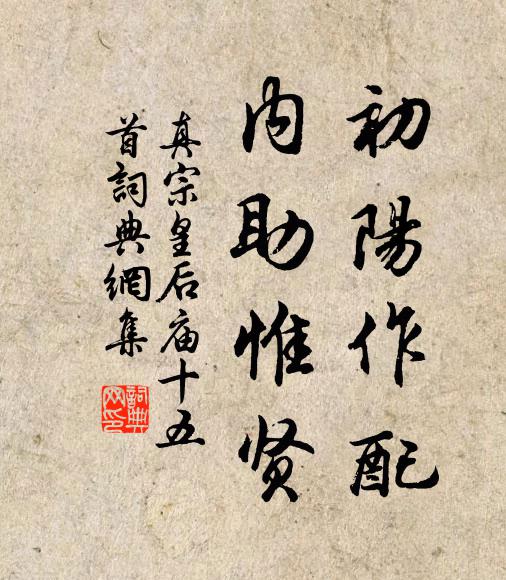 初陽作配
内助惟贤
真宗皇后庙十五
首詞典網集
詞典
网印